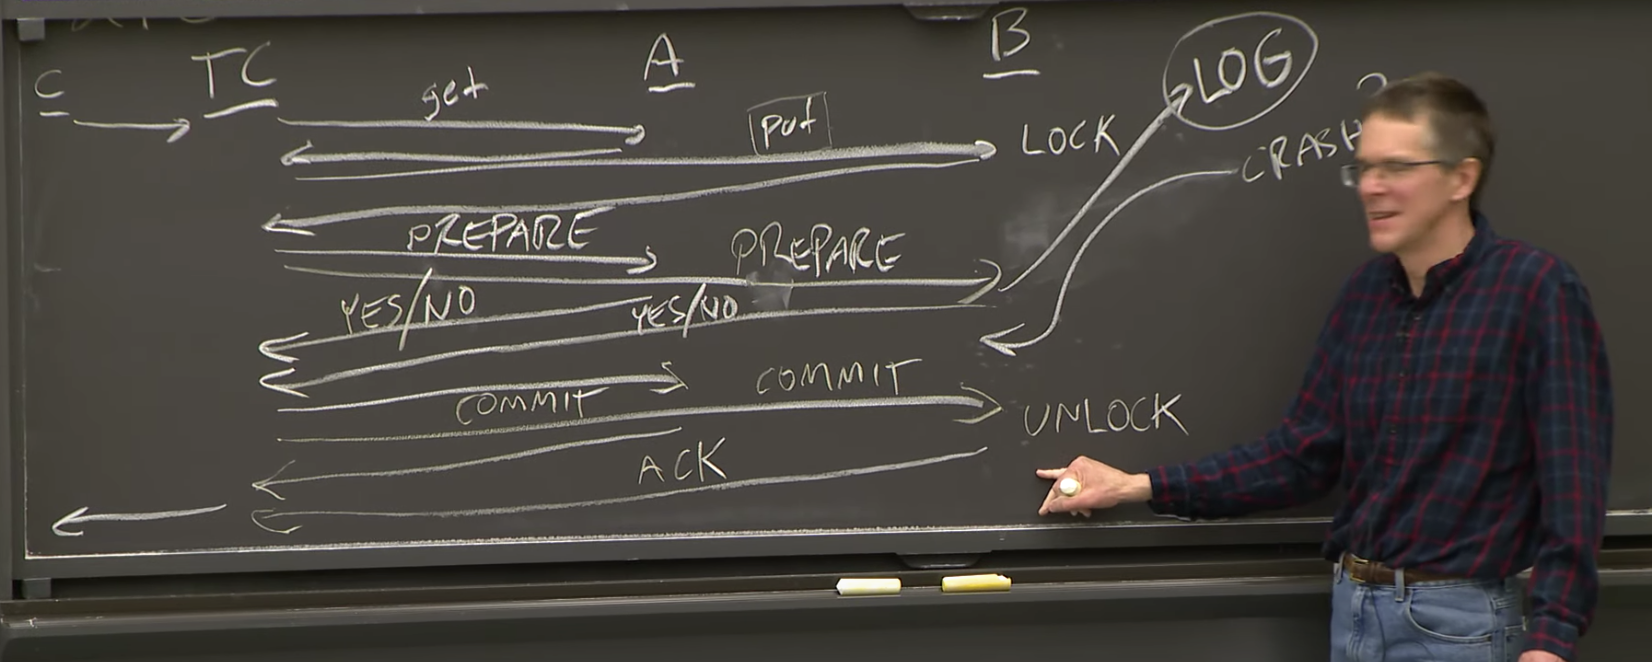 C TC A B
get
put
LOG
LOCK
CRASH
PREPARE PREPARE
YES/NO YES/NO
COMMIT
COMMIT
UNLOCK
ACK